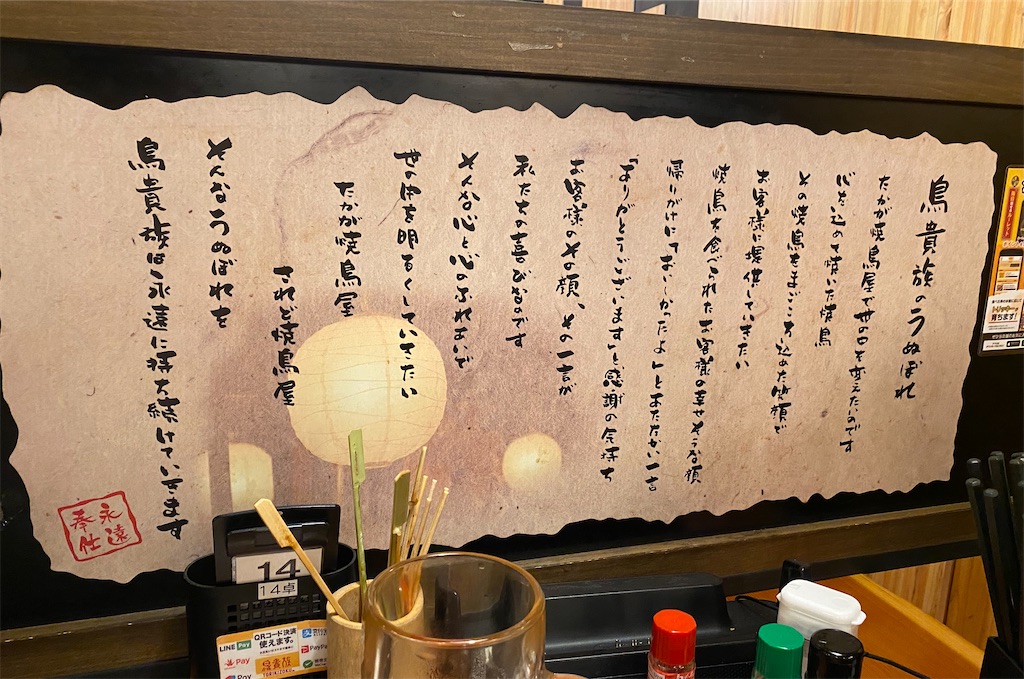 鳥貴族のうぬぼれ
たかが焼鳥屋で世の中を変えたいのです
心を込めて焼いた焼鳥
その焼鳥をまごころ込めた笑顔で
お客様に提供していきたい
焼鳥を食べられたお客様の幸せそうな顔
帰りがけに「おいしかったよ」とあたたかい一言
「ありがとうございます」と感謝の気持ち
お客様のその顔、その一言が
私たちの喜びなのです
そんな心と心のふれあいで
世の中を明るくしていきたい
たかが焼鳥屋
されど焼鳥屋
そんなうぬぼれを
鳥貴族は永遠に持ち続けていきます
永遠
奉仕
14
14卓
QRコード決済
使えます。
LINE Pay
PayPay
鳥貴族
TORIKIZOKU
育ちます!